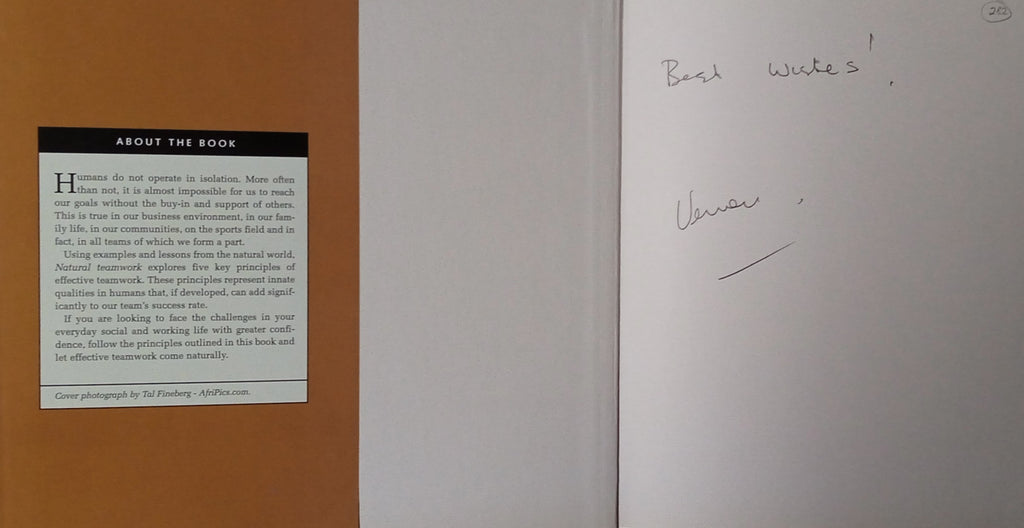 ABOUT THE BOOK
Humans do not operate in isolation. More often
than not, it is almost impossible for us to reach
our goals without the buy-in and support of others.
This is true in our business environment, in our fam-
ily life, in our communities, on the sports field and in
fact, in all teams of which we form a part.
Using examples and lessons from the natural world,
Natural teamwork explores five key principles of
effective teamwork. These principles represent innate
qualities in humans that, if developed, can add signif-
icantly to our team's success rate.
If you are looking to face the challenges in your
everyday social and working life with greater confi-
dence, follow the principles outlined in this book and
let effective teamwork come naturally.
Cover photograph by Tal Fineberg - AfriPics.com.
282
Best Wishes!